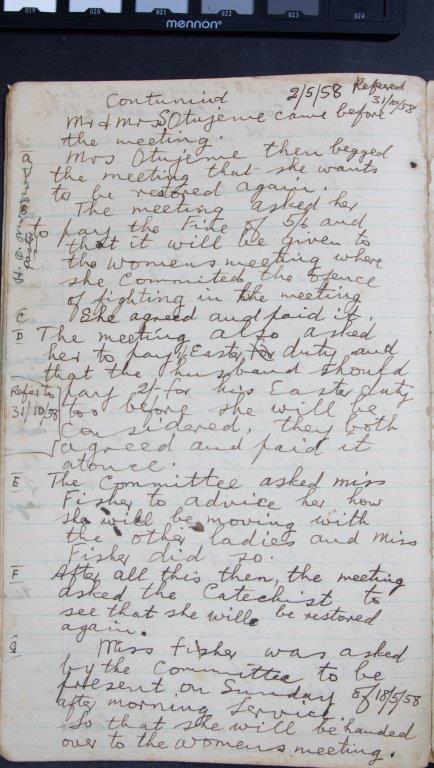 019 020 021 022 023 024
mennon
Contuniud 2/5/58 Refered
31/10/58
Mr & Mrs Otujeme came before
the meeting.
Mrs Otujeme then begged
the meeting that she wants
to be restored again.
The meeting asked her
pay the Fine of 5/6 and
that it will be given to
the womens meeting where
she Committed the ofence
of fighting in the meeting
C She agreed and paid it.
D The meeting also asked
her to pay Easter for duty and
that the husband should
Refer to
31/10/58
pay 2/- for his Easter duty
too before she will be
Considered, they both
agreed and paid it
atonce.
E The Committee asked miss
Fisher to advice her how
she will be moving with
the other ladies and Miss
Fisher did so.
F After all this then, the meeting
asked the Catechist to
see that she will be restored
again.
G Miss Fisher was asked
by the Committee to be
present on Sunday of 18/5/58
after morning Service.
So that she will be handed
over to the womens meeting.